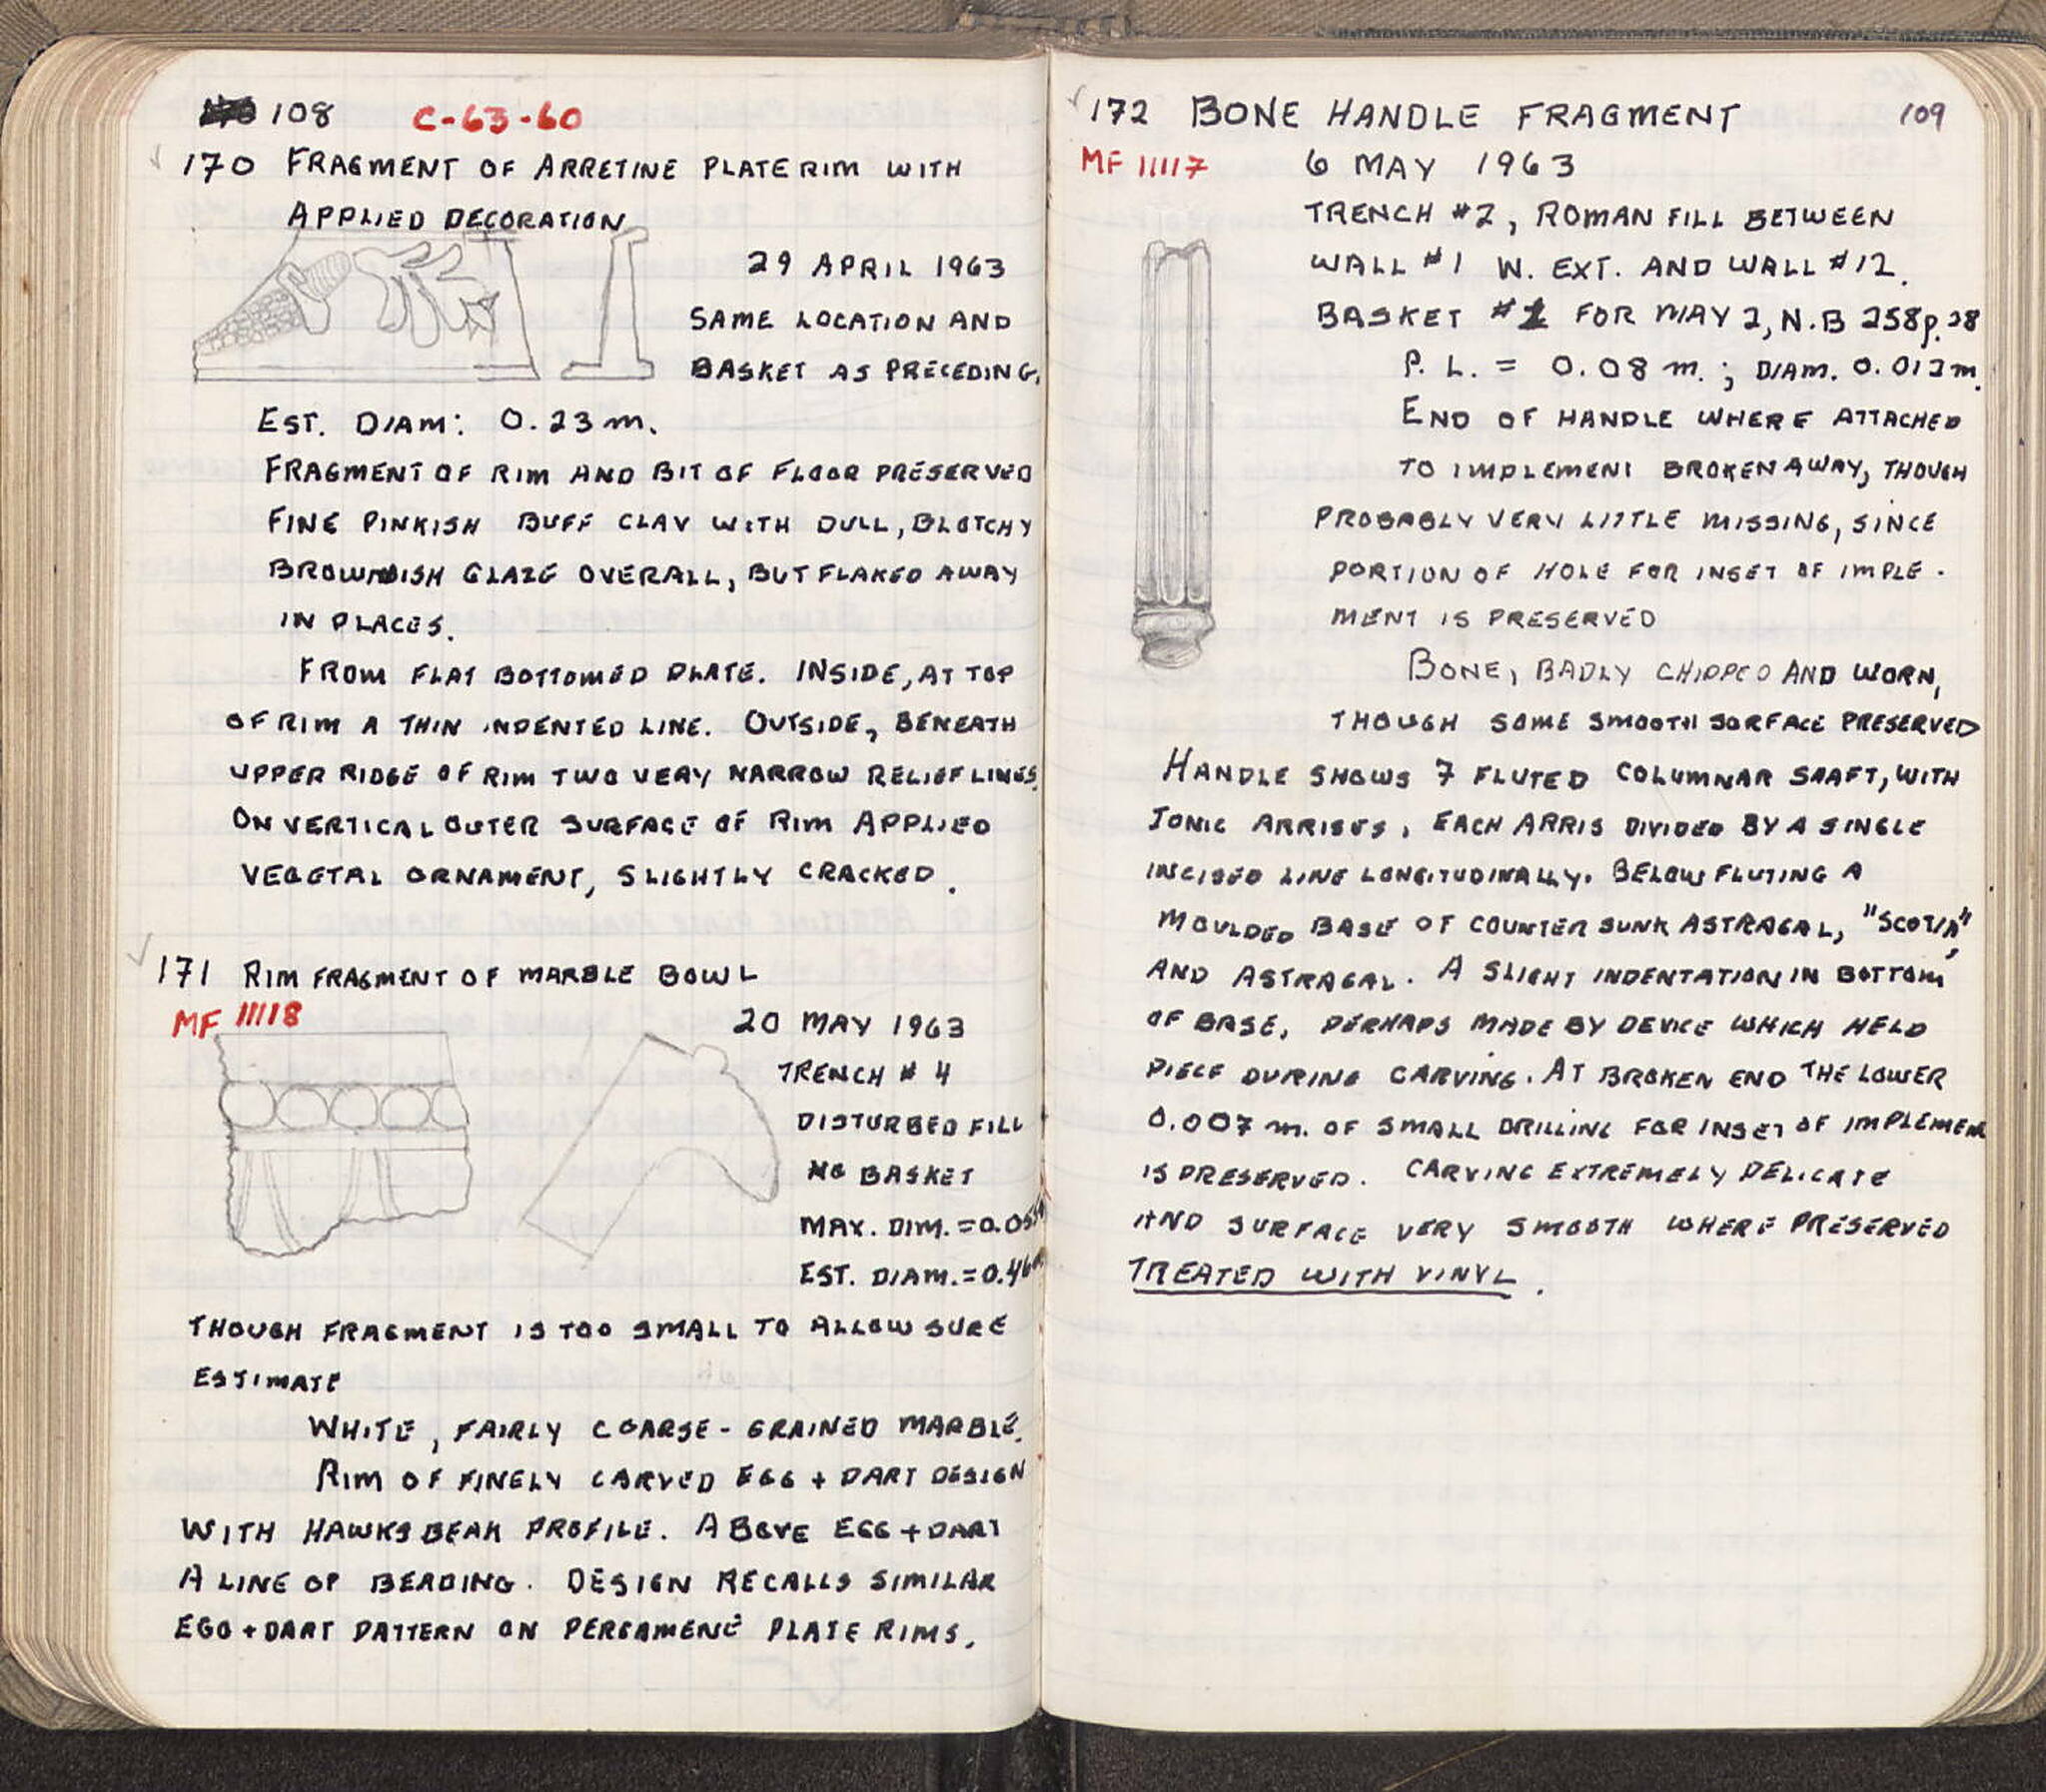 108 C-63-60
170 FRAGMENT OF ARRETINE PLATE RIM WITH
APPLIED DECORATION
29 APRIL 1963
SAME LOCATION AND
BASKET AS PRECEDING.
EST. DIAM: 0.23 m.
FRAGMENT OF RIM AND BIT OF FLOOR PRESERVED
FINE PINKISH BUFF CLAY WITH DULL, BLOTCHY
BROWNISH GLAZE OVERALL, BUT FLAKED AWAY
IN PLACES.
FROM FLAT BOTTOMED PLATE. INSIDE, AT TOP
OF RIM A THIN INDENTED LINE. OUTSIDE, BENEATH
UPPER RIDGE OF RIM TWO VERY NARROW RELIEF LINES.
ON VERTICAL OUTER SURFACE OF RIM APPLIED
VEGETAL ORNAMENT, SLIGHTLY CRACKED.
171 RIM FRAGMENT OF MARBLE BOWL
MF 11118
20 MAY 1963
TRENCH # 4
DISTURBED FILL
NO BASKET
MAX. DIM. = 0.05
EST. DIAM. = 0.46
THOUGH FRAGMENT IS TOO SMALL TO ALLOW SURE
ESTIMATE
WHITE, FAIRLY COARSE - GRAINED MARBLE.
RIM OF FINELY CARVED EGG + DART DESIGN
WITH HAWKSBEAK PROFILE. ABOVE EGG + DART
A LINE OF BEADING. DESIGN RECALLS SIMILAR
EGG + DART PATTERN ON PERGAMENE PLATE RIMS.
172 BONE HANDLE FRAGMENT 109
MF 11117 6 MAY 1963
TRENCH #2, ROMAN FILL BETWEEN
WALL #1 W. EXT. AND WALL #12.
BASKET # FOR MAY 2, N.B 258 p. 28
P. L. = 0.08 m. ; DIAM. 0.012 m.
END OF HANDLE WHERE ATTACHED
TO IMPLEMENT BROKEN AWAY, THOUGH
PROBABLY VERY LITTLE MISSING, SINCE
PORTION OF HOLE FOR INSET OF IMPLE-
MENT IS PRESERVED
BONE, BADLY CHIPPED AND WORN,
THOUGH SOME SMOOTH SURFACE PRESERVED
HANDLE SHOWS 7 FLUTED COLUMNAR SHAFT, WITH
IONIC ARRISES, EACH ARRIS DIVIDED BY A SINGLE
INCISED LINE LONGITUDINALLY. BELOW FLUTING A
MOULDED BASE OF COUNTER SUNK ASTRAGAL, "SCOTIA",
AND ASTRAGAL. A SLIGHT INDENTATION IN BOTTOM
OF BASE, PERHAPS MADE BY DEVICE WHICH HELD
PIECE DURING CARVING. AT BROKEN END THE LOWER
0.007 m. OF SMALL DRILLING FOR INSET OF IMPLEMEN
IS PRESERVED. CARVING EXTREMELY DELICATE
AND SURFACE VERY SMOOTH WHERE PRESERVED
TREATED WITH VINYL.